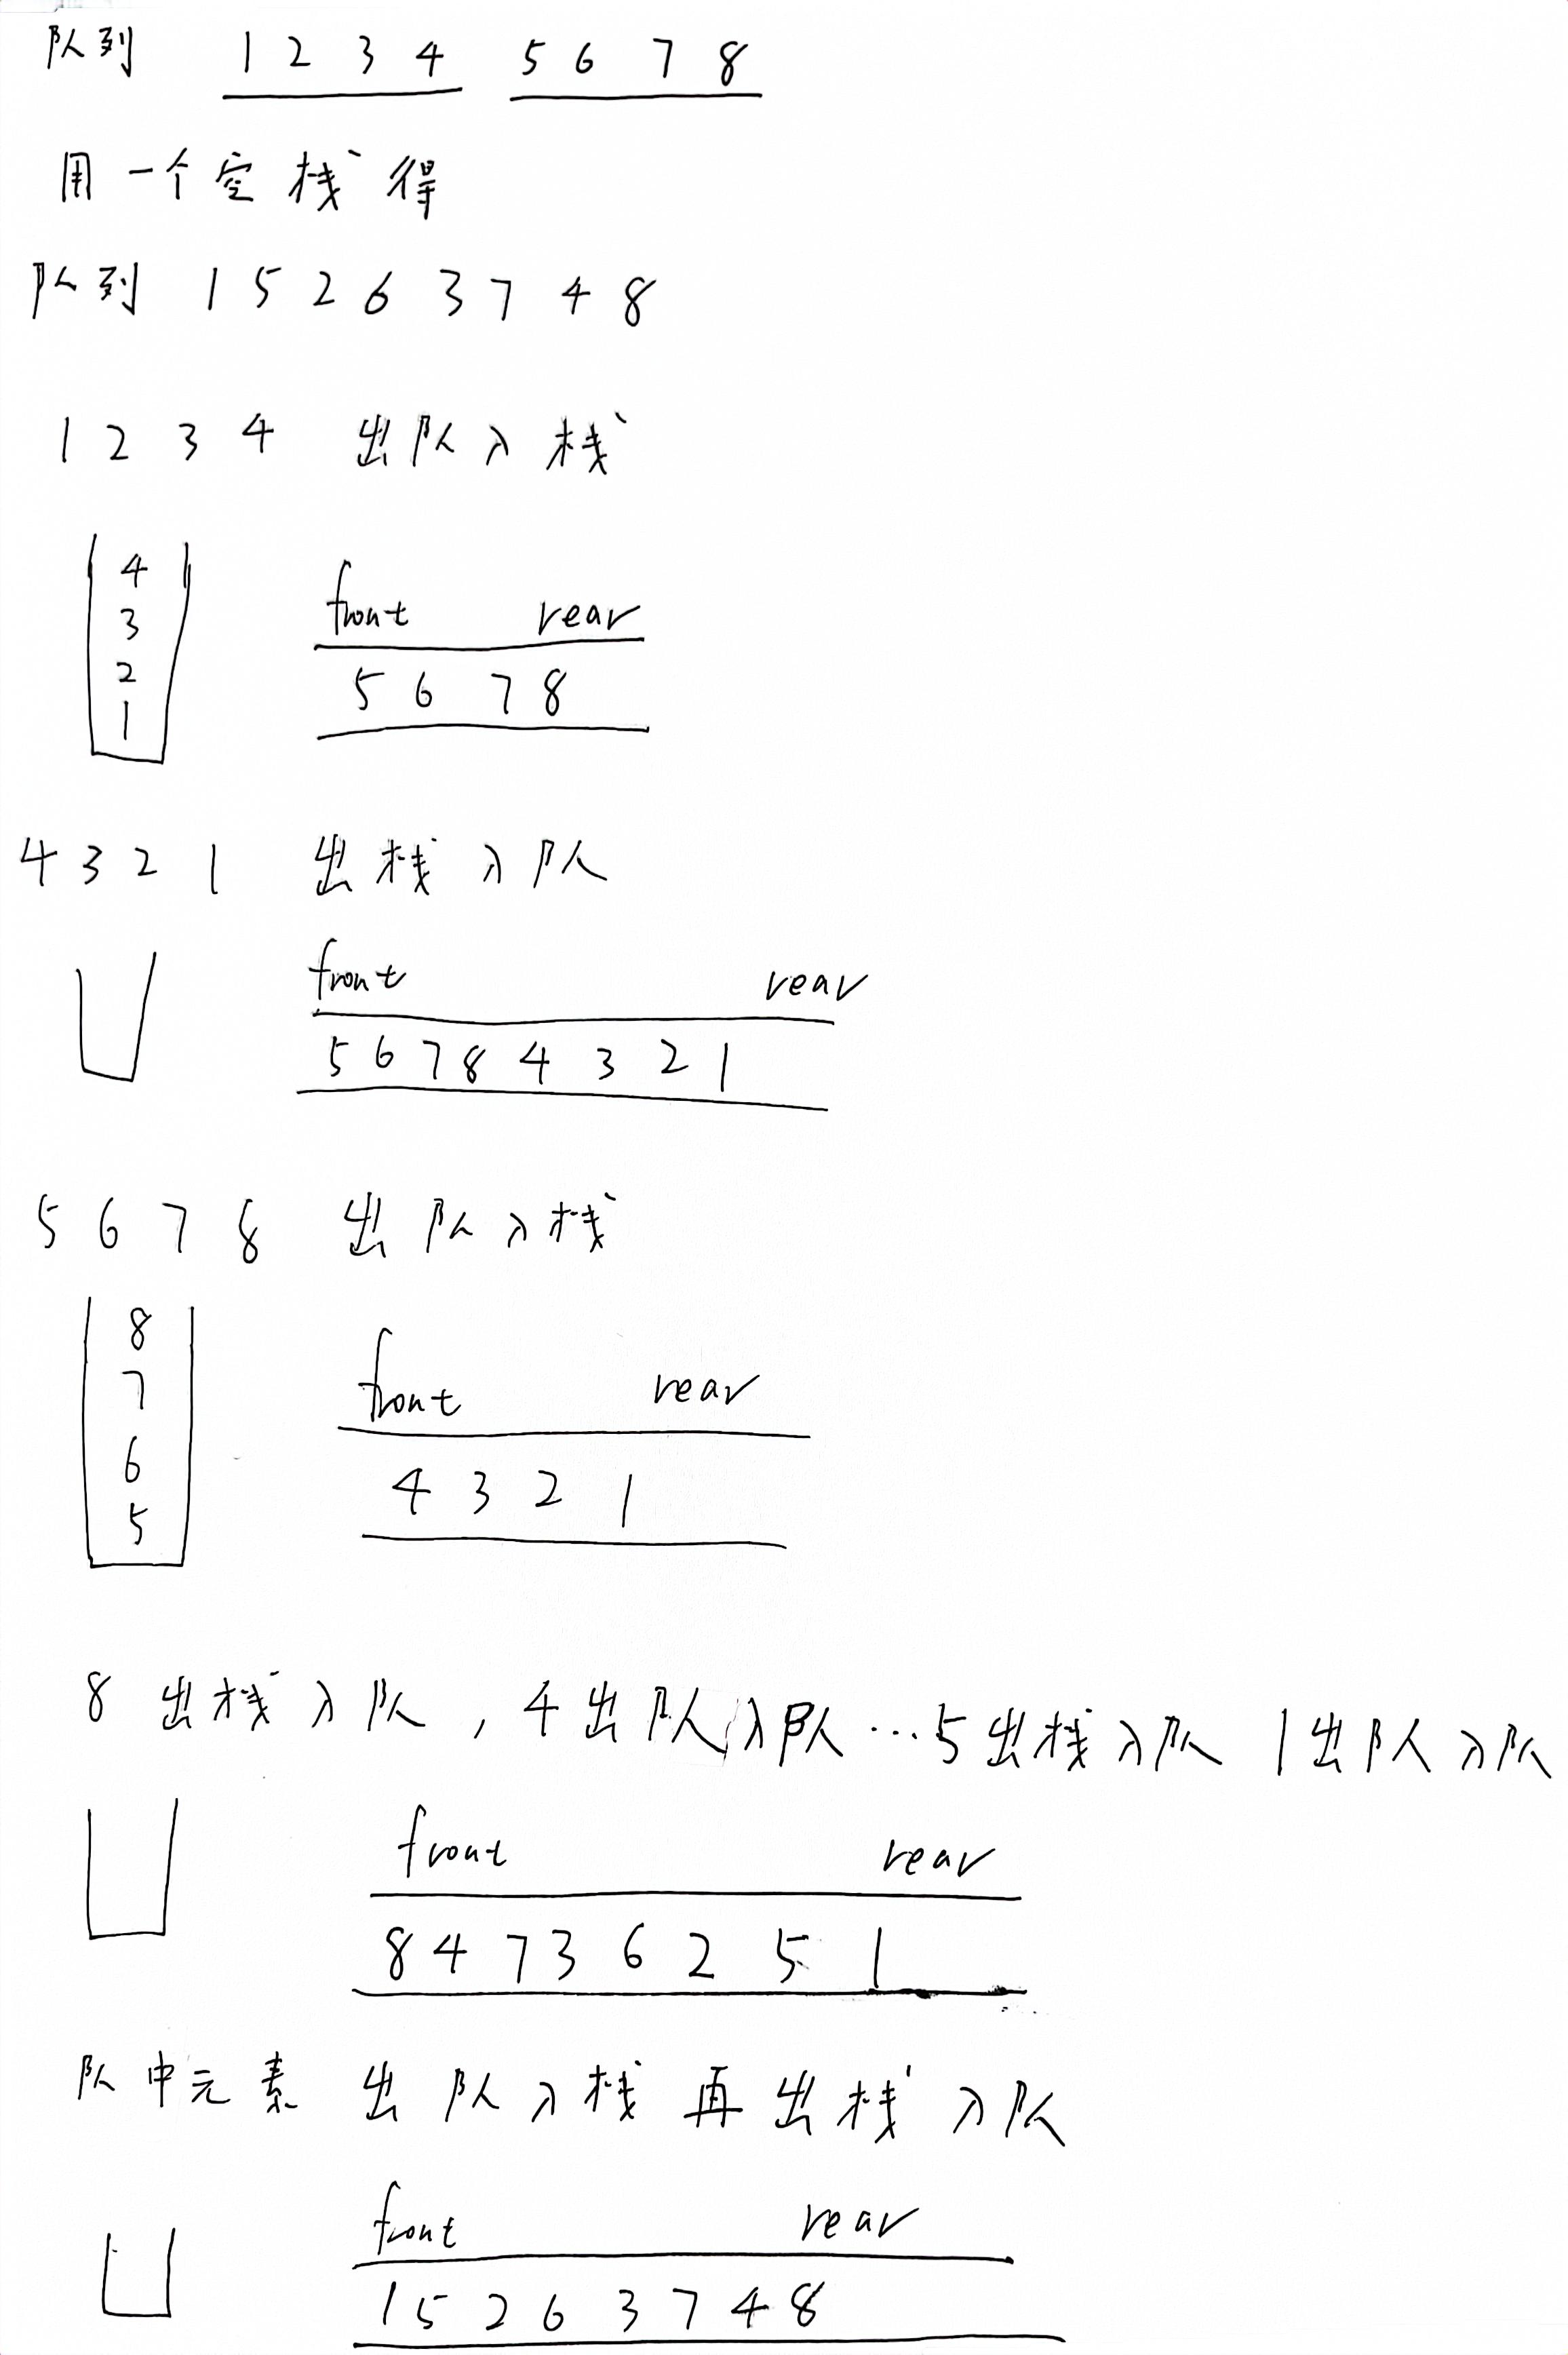 队列 1 2 3 4 5 6 7 8
用一个空栈得
队列 1 5 2 6 3 7 4 8
1 2 3 4 出队入栈
4
3
2
1
front rear
5 6 7 8
4 3 2 1 出栈入队
front rear
5 6 7 8 4 3 2 1
5 6 7 8 出队入栈
8
7
6
5
front rear
4 3 2 1
8 出栈入队, 4出队入队…5出栈入队 1出队入队
front rear
8 4 7 3 6 2 5 1
队中元素 出队入栈再出栈入队
front rear
1 5 2 6 3 7 4 8